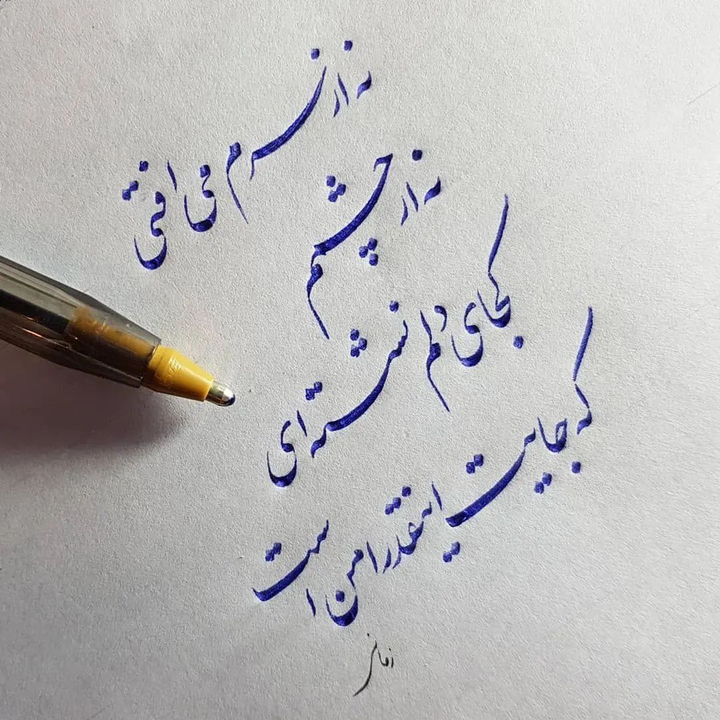 نه از سرم می افتی
نه از چشمم
کجای دلم نشسته ای
که جایت اینقدر امن است
زمانی